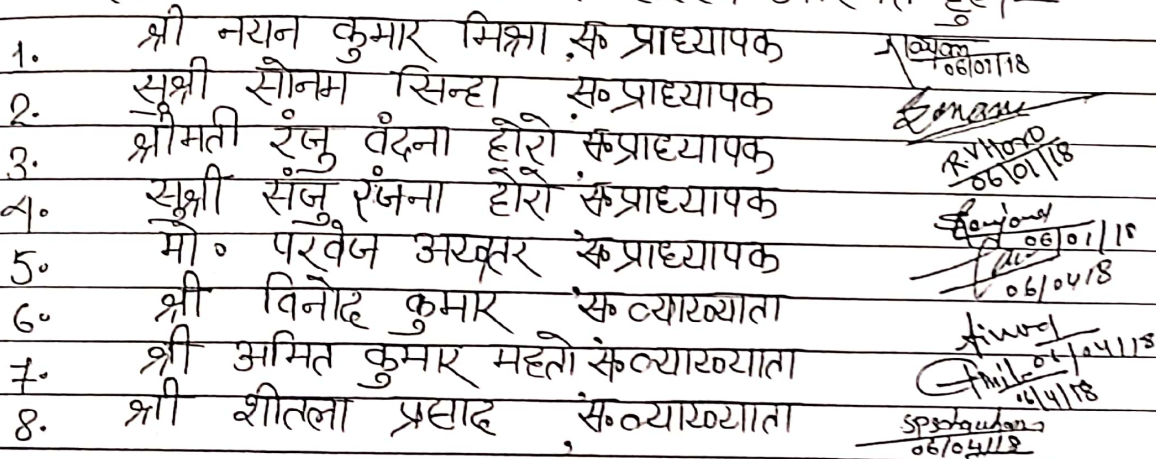 1. श्री नयन कुमार मिश्रा सं० प्राध्यापक 06/01/18
2. सुश्री सोनम सिन्हा सं० प्राध्यापक
3. श्रीमती रंजु वंदना होरो सं० प्राध्यापक R.V Horo 06/01/18
4. सुश्री संजु रंजना होरो सं० प्राध्यापक 06/01/18
5. मो० परवेज अख्तर सं० प्राध्यापक 06/04/18
6. श्री विनोद कुमार सं० व्याख्याता 06/04/18
7. श्री अमित कुमार महतो सं० व्याख्याता 06/4/18
8. श्री शीतला प्रसाद सं० व्याख्याता 06/04/18